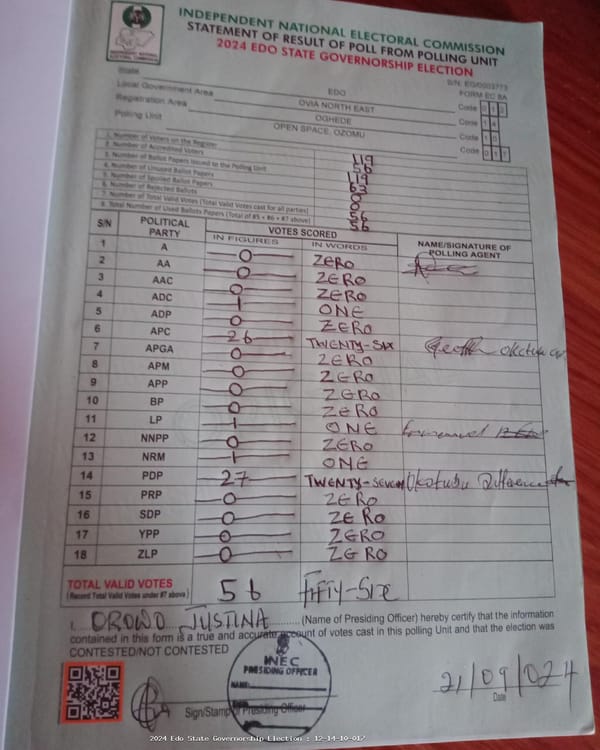 INDEPENDENT NATIONAL ELECTORAL COMMISSION
STATEMENT OF RESULT OF POLL FROM POLLING UNIT
2024 EDO STATE GOVERNORSHIP ELECTION
S/N: EG/0003773
FORM EC 8A
State EDO Code 012
Local Government Area OVIA NORTH EAST Code 14
Registration Area OGHEDE Code 10
Polling Unit OPEN SPACE, OZOMU Code
1. Number of Voters on the Register 119
2. Number of Accredited Voters 56
3. Number of Ballot Papers Issued to the Polling Unit 119
4. Number of Unused Ballot Papers 63
5. Number of Spoiled Ballot Papers 0
6. Number of Rejected Ballots 0
7. Number of Total Valid Votes (Total Valid Votes cast for all parties) 56
8. Total Number of Used Ballots Papers (Total of #5 + #6 + #7 above) 56
S/N POLITICAL PARTY VOTES SCORED NAME/SIGNATURE OF POLLING AGENT
IN FIGURES IN WORDS
1 A 0 ZERO
2 AA 0 ZERO
3 AAC 0 ZERO
4 ADC 1 ONE
5 ADP 0 ZERO
6 APC 26 TWENTY-SIX
7 APGA 0 ZERO
8 APM 0 ZERO
9 APP 0 ZERO
10 BP 0 ZERO
11 LP 1 ONE
12 NNPP 0 ZERO
13 NRM 1 ONE
14 PDP 27 TWENTY-SEVEN
15 PRP 0 ZERO
16 SDP 0 ZERO
17 YPP 0 ZERO
18 ZLP 0 ZERO
TOTAL VALID VOTES 56 FIFTY-SIX
(Record Total Valid Votes under #7 above)
I, OROWO JUSTINA (Name of Presiding Officer) hereby certify that the information
contained in this form is a true and accurate account of votes cast in this polling Unit and that the election was
CONTESTED/NOT CONTESTED
INEC
PRESIDING OFFICER
NAME:
21/09/024
Sign/Stamp of Presiding Officer
Date
2024 Edo State Governorship Election : 12-14-10-017